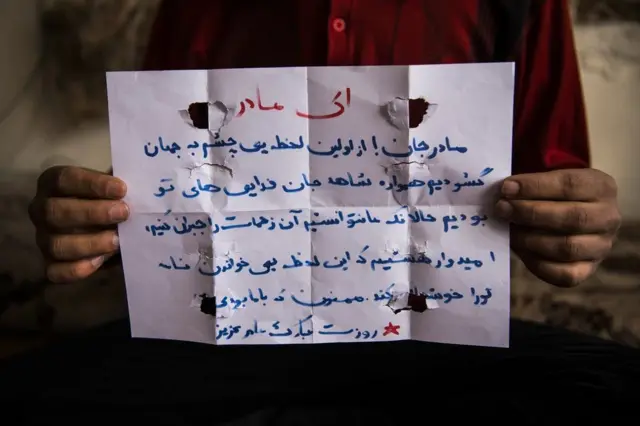 ای مادر
مادر جان ! از اولین لحظه یی چشم به جهان
گشودیم همواره شاهد جان فدایی های تو
بودیم حالانکه ما نتوانستیم آن زحمات را جبران کنیم،
امیدوار هستیم که این لحظه یی خواندن نامه
تورا کند. ممنون که با ما بودی
روزت مبارک مادر عزیز